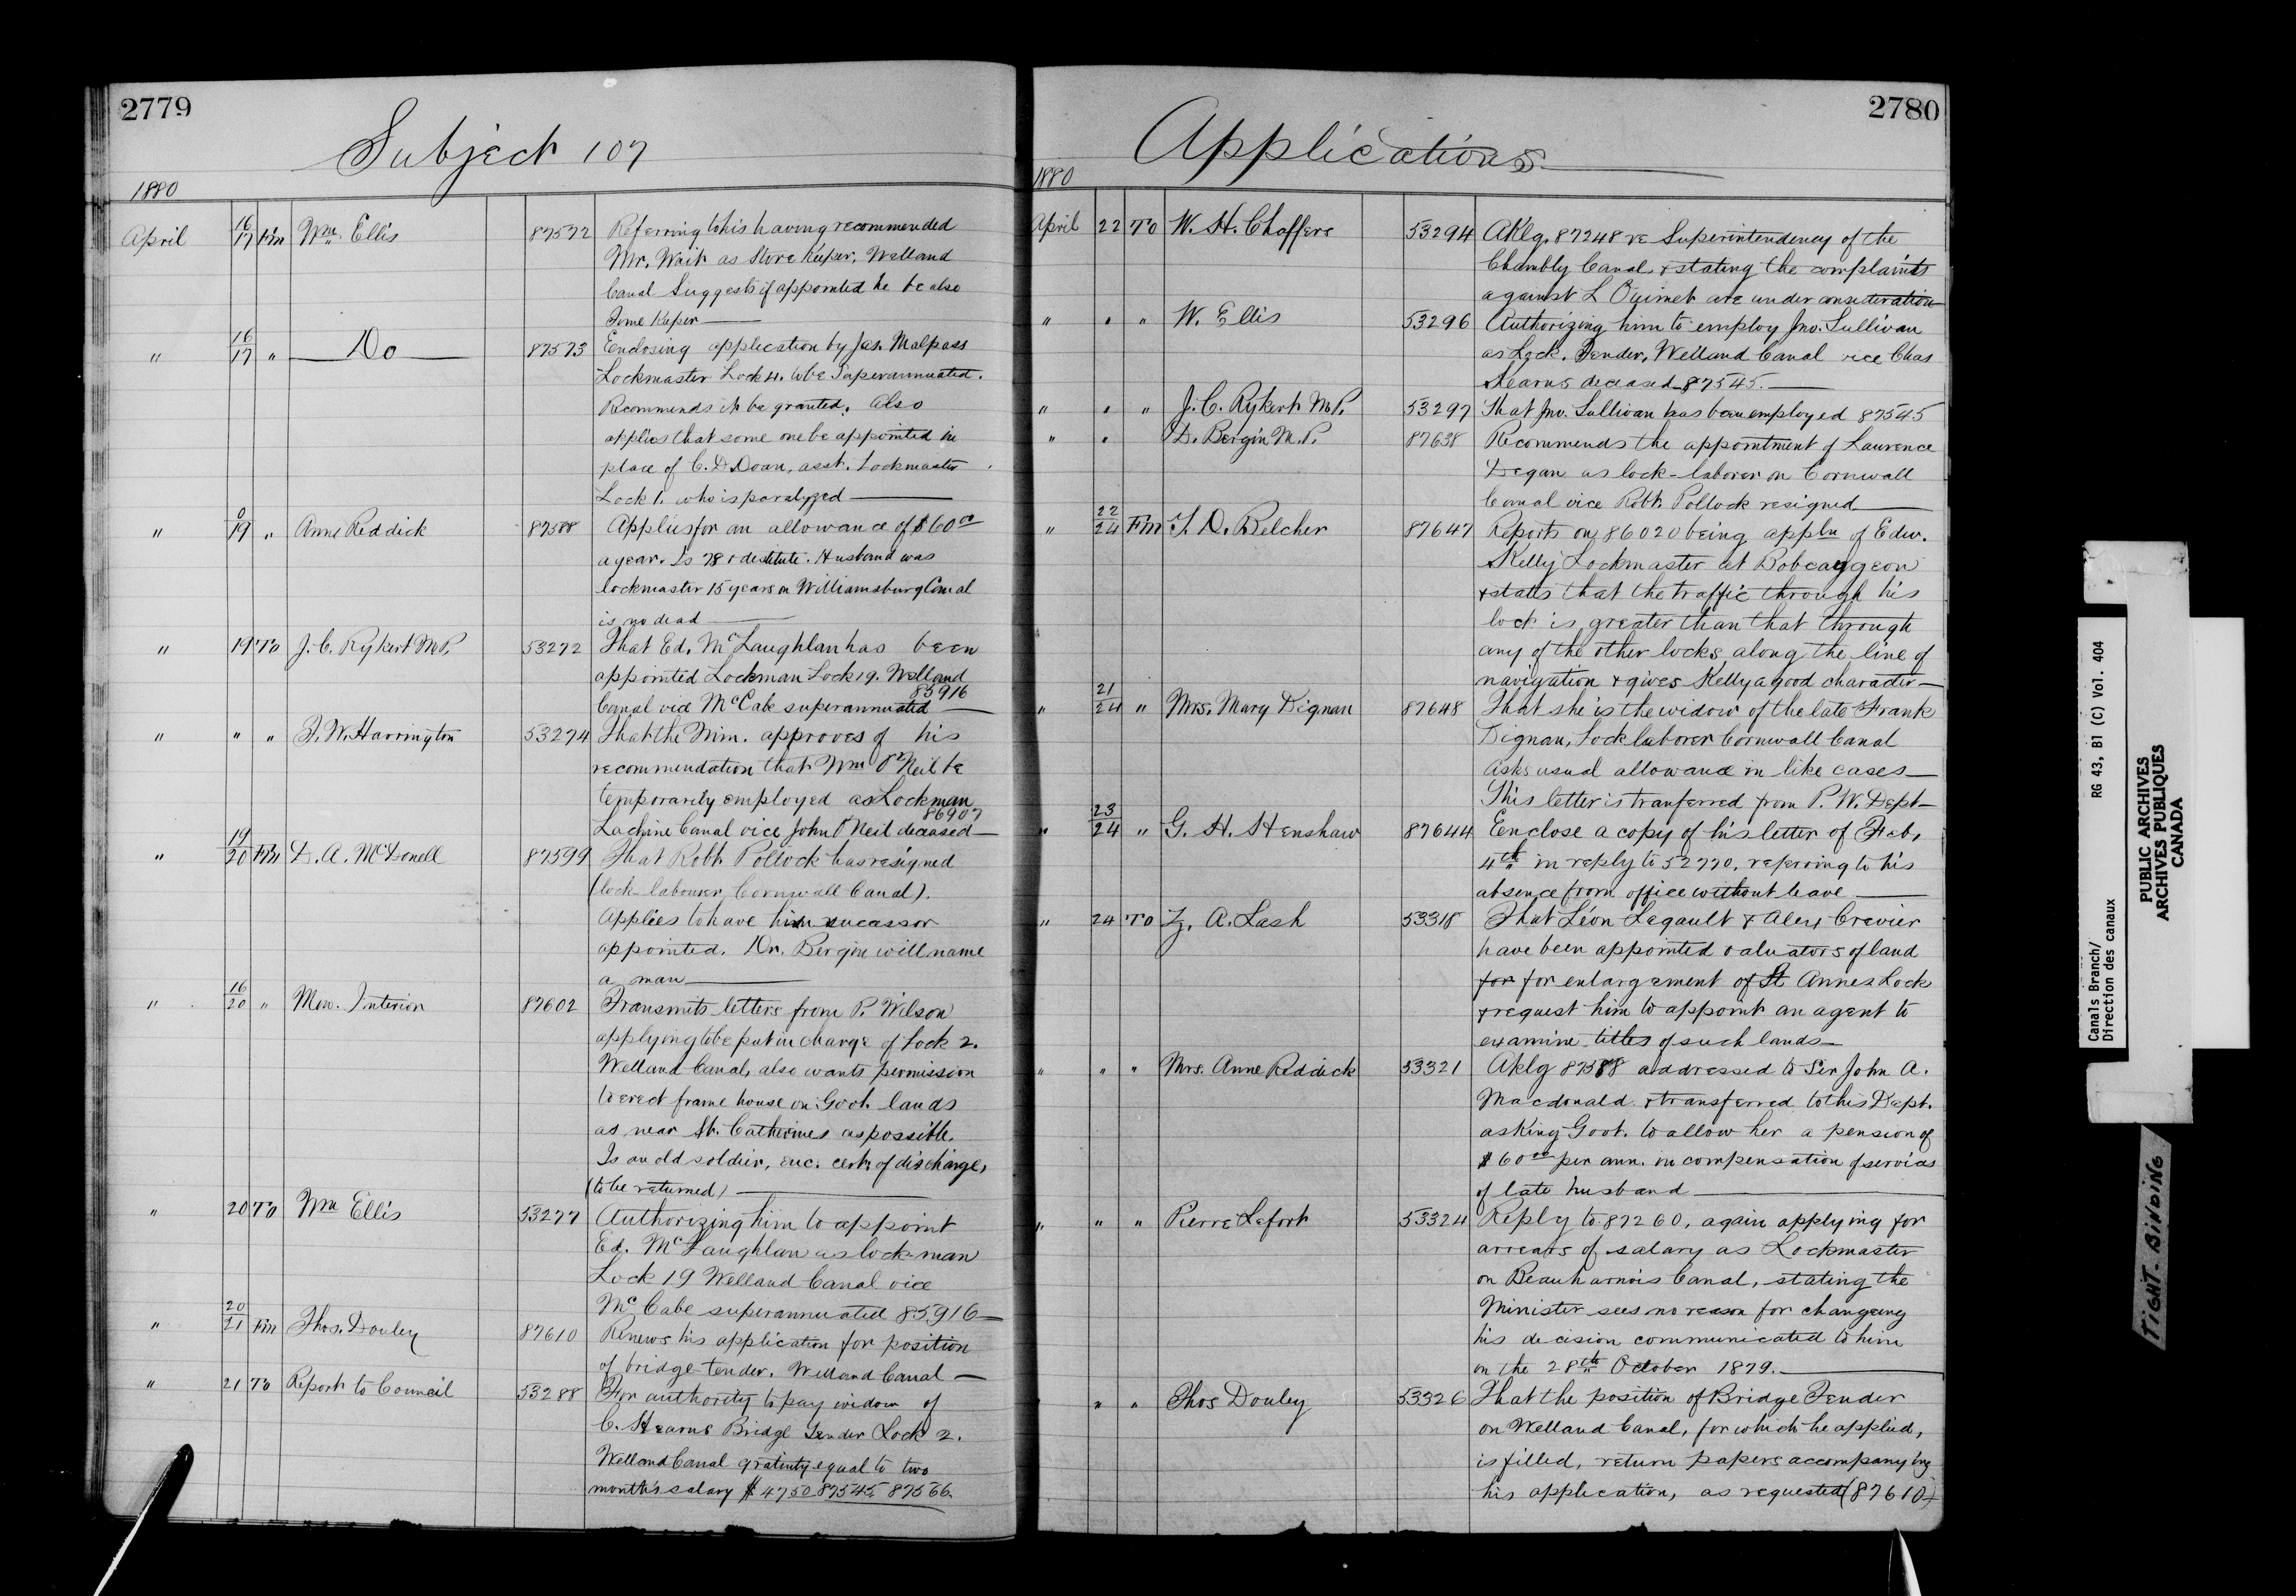 2779
Subject 107
1880
April 16/17 Fm Wm. Ellis 87572 Referring to his having recommended
Mr. Wait as Store Keeper, Welland
Canal Suggests if appointed he be also
Time Keeper
" 16/17 " Do 87573 Enclosing application by Jas. Malpass
Lockmaster Lock 4. to be Superannuated.
Recommends it be granted. Also
applies that some one be appointed in
place of C. D. Doan, asst. Lockmaster
Lock 1. who is paralyzed
" 0/19 " Anne Reddick 87588 Applies for an allowance of $60 00
a year. Is 78 & destitute. Husband was
lockmaster 15 years on Williamsburg Canal
is no dead
" 19 To J. C. Rykert M.P. 53272 That Ed. McLaughlan has been
appointed Lockman Lock 19. Welland
Canal vice McCabe superannuated 85916
" " " F. W. Harrington 53274 That the Min. approves of his
recommendation that Wm O'Neil be
temporarily employed as Lockman
Lachine Canal vice John O'Neil deceased 86907
" 19/20 Fm D. A. McDonell 87599 That Robt. Pollock has resigned
(lock-labourer, Cornwall Canal).
Applies to have him sucassor
appointed. Dr. Bergin will name
a man
" 16/20 " Mem. Interior 87602 Transmits letters from P. Wilson
applying to be put in charge of Lock 2.
Welland Canal, also wants permission
to erect frame house on Govt. lands
as near St. Catherines as possible.
Is an old soldier, enc. cert. of discharge,
(to be returned)
" 20 To Wm Ellis 53277 Authorizing him to appoint
Ed. McLaughlan as lock-man
Lock 19 Welland Canal vice
McCabe superannuated 85916
" 20/21 Fm Thos. Douley 87610 Renews his application for position
of bridge-tender. Welland Canal
" 21 To Report to Council 53288 For authority to pay widow of
C. Stearns Bridge Tender Lock 2.
Welland Canal gratuity equal to two
month's salary $47 50 87545. 87566.
2780
Applications
1880
April 22 To W. H. Chaffers 53294 Aklg. 87248 re Superintendency of the
Chambly Canal, & stating the complaints
against L Ouimet are under consideration
" " " W. Ellis 53296 Authorizing him to employ Jno. Sullivan
as Lock. Tender, Welland Canal vice Chas
Stearns deceased 87545.
" " " J. C. Rykert M.P. 53297 That Jno. Sullivan has been employed 87545
" " D. Bergin M.P. 87638 Recommends the appointment of Laurence
Degan as lock-laborer on Cornwall
Canal vice Robt. Pollock resigned
" 22/24 Fm T. D. Belcher 87647 Reports on 86020 being appln of Edw.
Kelly Lockmaster at Bobcaygeon
& states that the traffic through his
lock is greater than that through
any of the other locks along the line of
navigation & gives Kelly a good character
" 21/24 " Mrs. Mary Dignan 87648 That she is the widow of the late Frank
Dignan, Lock laborer Cornwall Canal
Asks usual allowance in like cases
This letter is tranferred from P. W. Dept
" 23/24 " G. H. Henshaw 87644 Enclose a copy of his letter of Feb.
4th in reply to 52770, referring to his
absence from office without leave
" 24 To Z. A. Lash 53318 That Léon Legault & Alex Crevier
have been appointed valuators of land
for for enlargement of St Annes Lock
& request him to appoint an agent to
examine titles of such lands
" " " Mrs. Anne Reddick 53321 Aklg 87588 addressed to Sir John A.
Macdonald & transferred to this Dept.
asking Govt. to allow her a pension of
$60 00 per ann. in compensation of services
of late husband
" " " Pierre Lefort 53324 Reply to 87260, again applying for
arrears of salary as Lockmaster
on Beauharnois Canal, stating the
Minister sees no reason for changeing
his decision communicated to him
on the 28th October 1879.
" " Thos Douley 53326 That the position of Bridge Tender
on Welland Canal, for which he applied,
is filled, return papers accompanying
his application, as requested (87610)
Canals Branch/ RG 43, B1 (C) Vol. 404
Direction des canaux
PUBLIC ARCHIVES
ARCHIVES PUBLIQUES
CANADA
TIGHT. BINDING